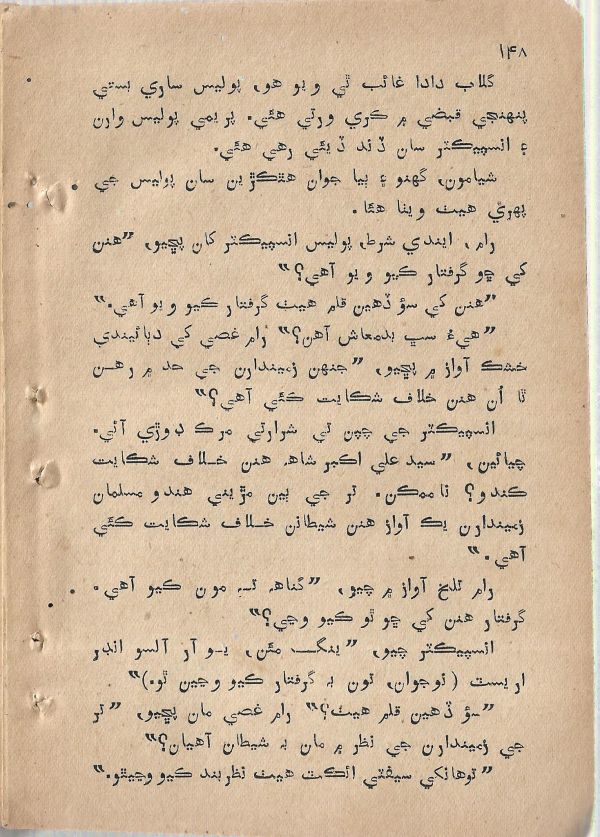 ۱۴۸
گلاب دادا غائب ٿي ويو هو، پوليس ساري بستي
پنهنجي قبضي ۾ ڪري ورتي هئي. پريمي پوليس وارن
۽ انسپيڪٽر سان ڏند ڏيئي رهي هئي.
شيامون، گهنو ۽ ٻيا جوان هٿڪڙين سان پوليس جي
پهري هيٺ ويٺا هئا.
رام، ايندي شرط، پوليس انسپيڪٽر کان پڇيو، ”هنن
کي ڇو گرفتار ڪيو ويو آهي؟“
”هنن کي سؤ ڏهين قلم هيٺ گرفتار ڪيو ويو آهي.“
”هيءُ سڀ بدمعاش آهن؟“ رام غصي کي دٻائيندي
خشڪ آواز ۾ پڇيو، ”جنهن زميندارن جي حد ۾ رهن
ٿا اُن هنن خلاف شڪايت ڪئي آهي؟“
انسپيڪٽر جي چپن تي شرارتي مرڪ ڊوڙي آئي.
چيائين، ”سيد علي اڪبر شاهہ هنن خلاف شڪايت
ڪندو؟ ناممڪن. تر جي ٻين مڙيني هندو مسلمان
زميندارن يڪ آواز هنن شيطانن خلاف شڪايت ڪئي
آهي.“
رام تلخ آواز ۾ چيو، ”گناهہ تہ مون ڪيو آهي.
گرفتار هنن کي ڇو ٿو ڪيو وڃي؟“
انسپيڪٽر چيو، ”ينگ مئن، يو آر آلسو انڊر
اريسٽ (نوجوان، تون بہ گرفتار ڪيو وڃين ٿو.)“
”سؤ ڏهين قلم هيٺ؟“ رام غصي مان پڇيو، ”تر
جي زميندارن جي نظر ۾ مان بہ شيطان آهيان؟“
”توهانکي سيفٽي ائڪٽ هيٺ نظربند ڪيو وڃيٿو.“